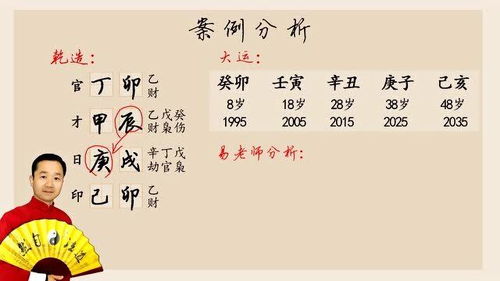 案例分析
乾造：
大运：
官 丁 卯 乙财
才 甲 辰 乙财 戊枭 癸伤
日 庚 戌 辛劫 丁官 戊枭
印 己 卯 乙财
癸卯 壬寅 辛丑 庚子 己亥
8岁 18岁 28岁 38岁 48岁
1995 2005 2015 2025 2035
易老师分析：